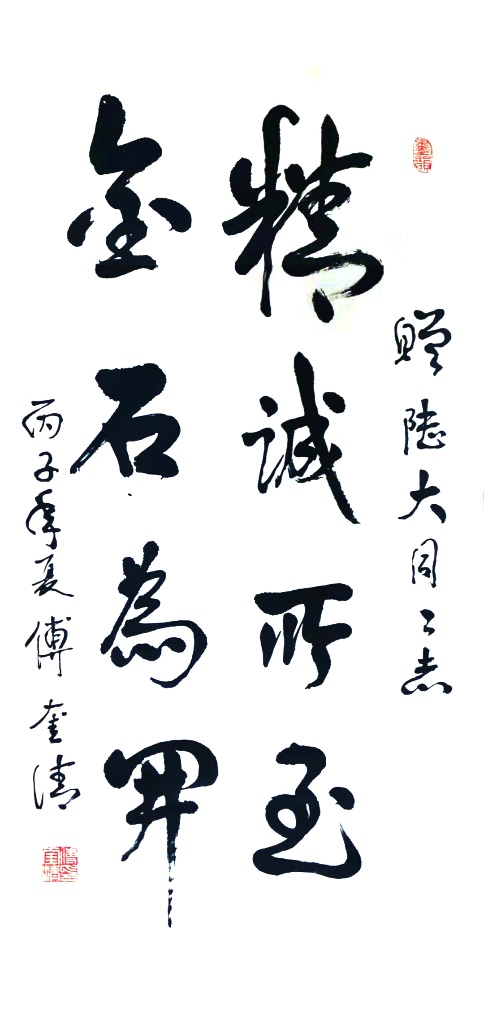 贈陸大同々志
精誠所至
金石為開
丙子年夏傅奎清